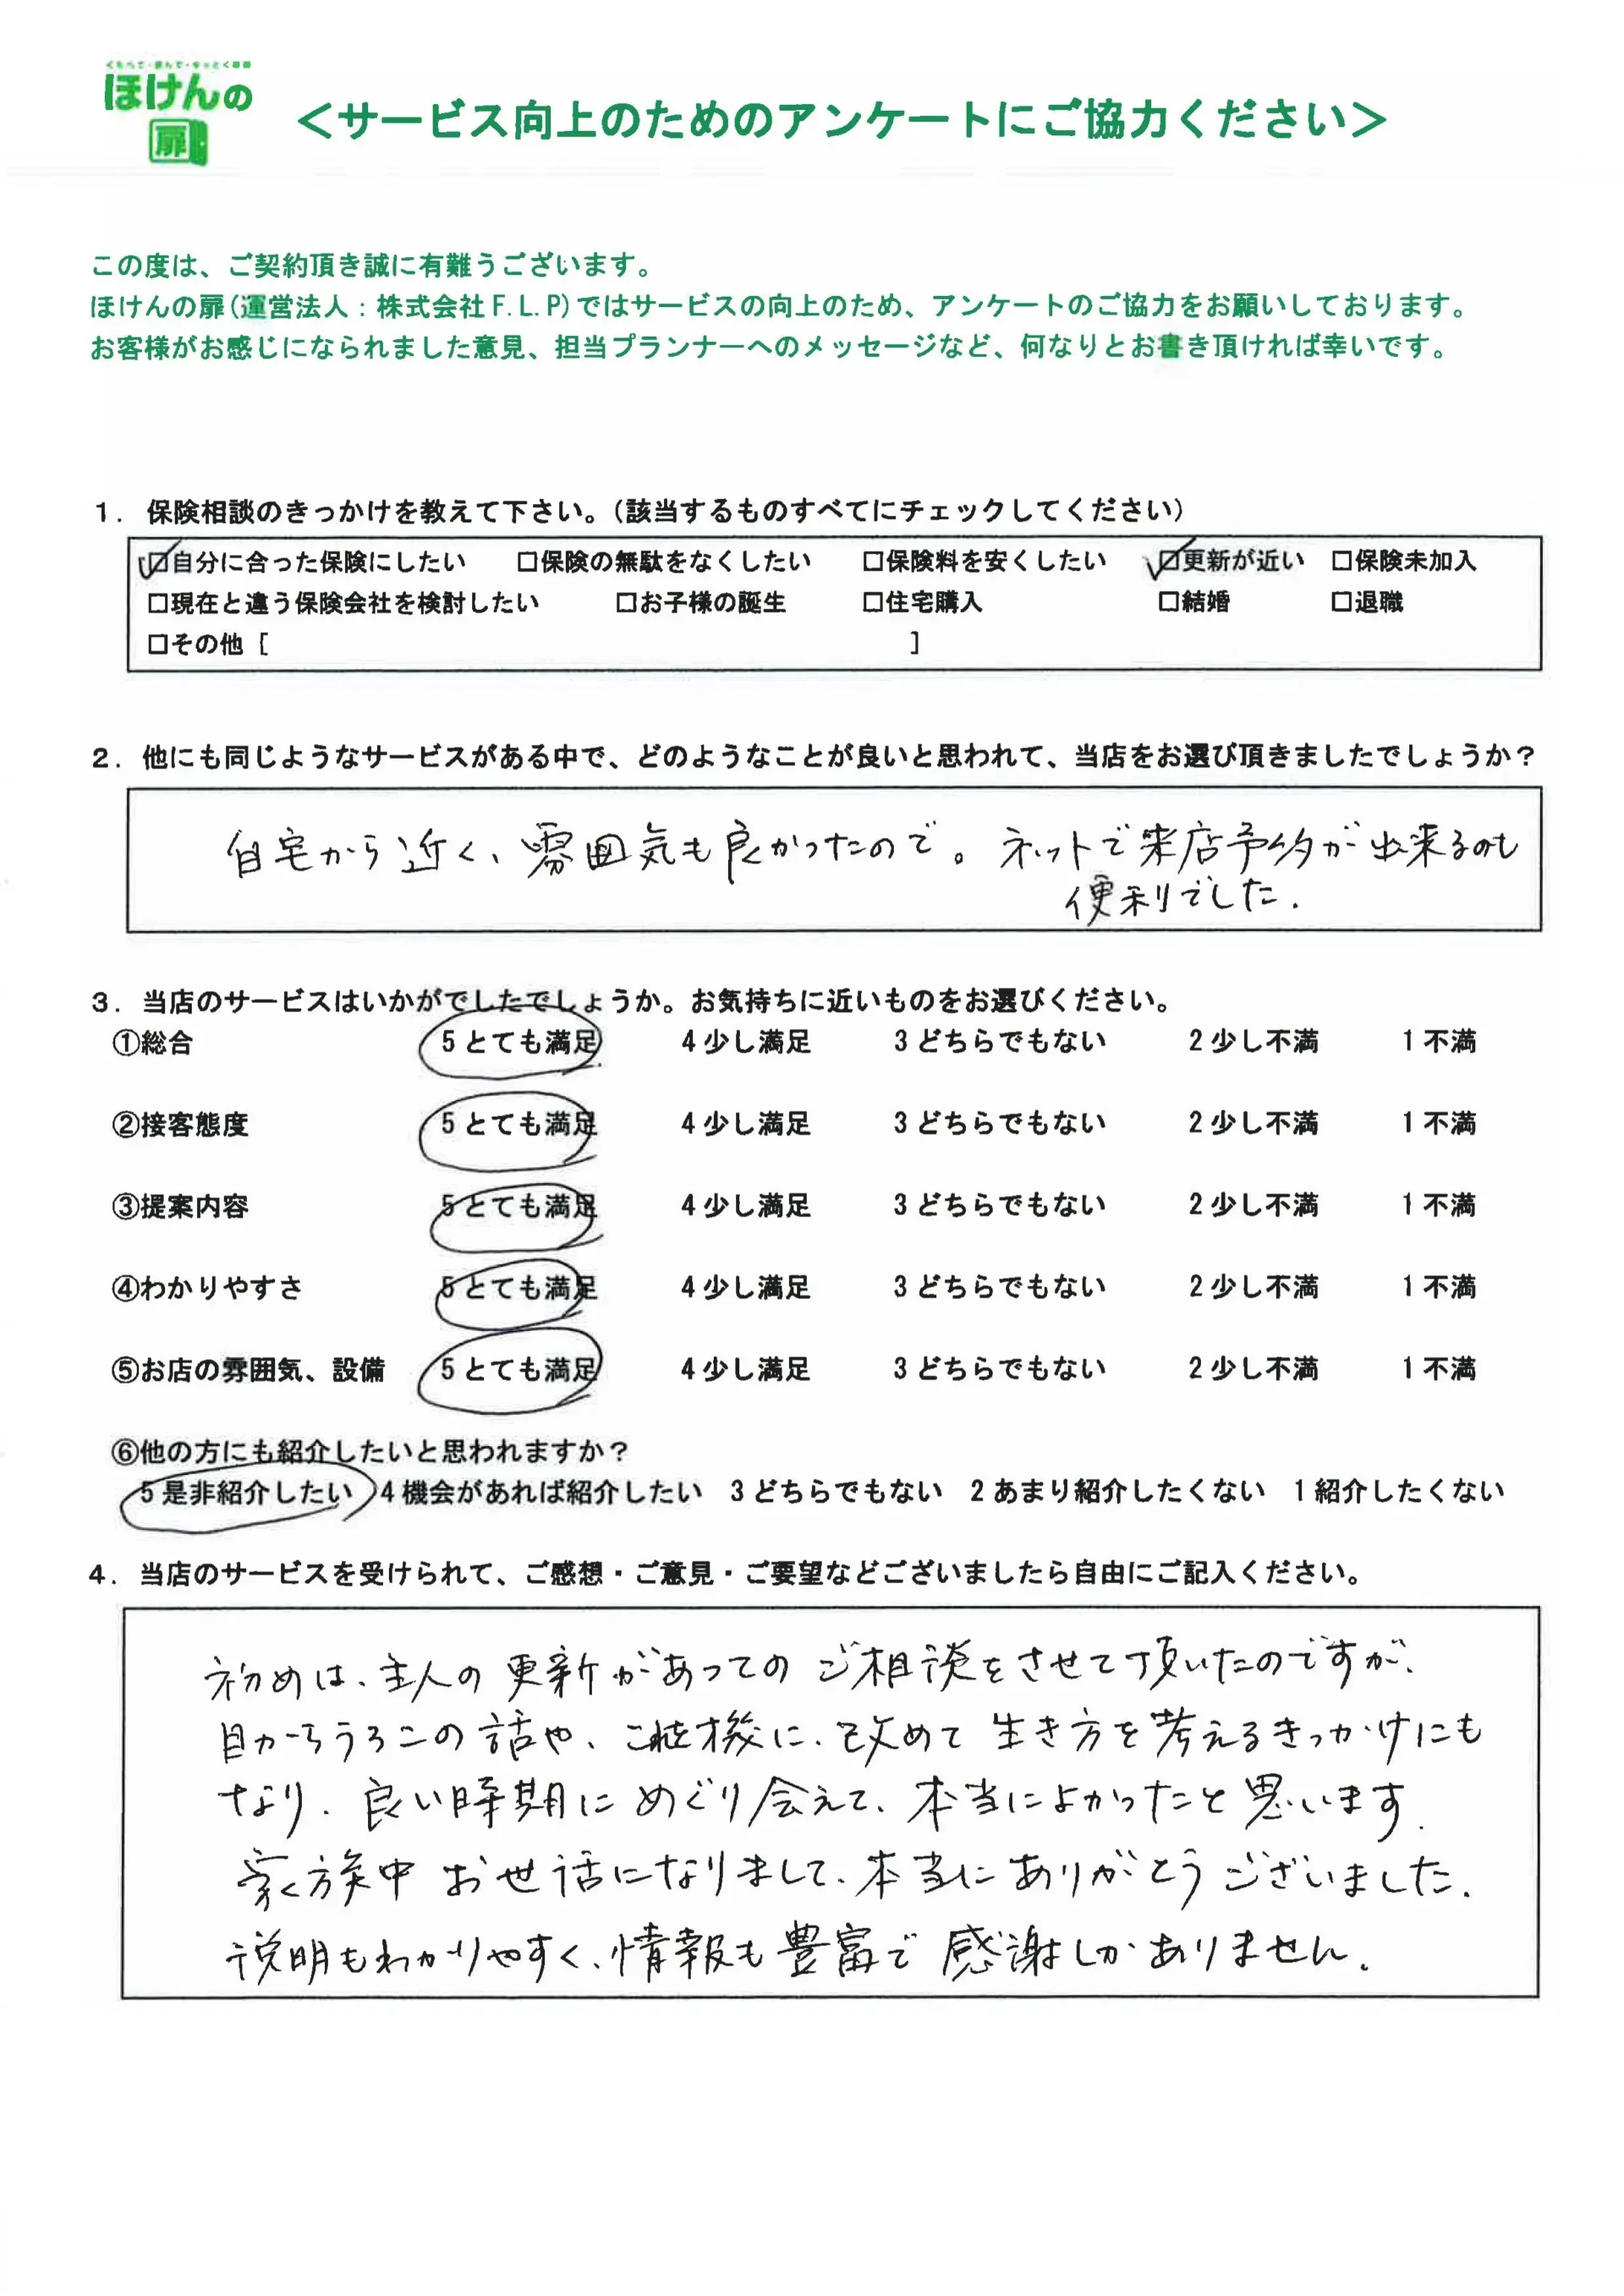 ほけんの
扉
＜サービス向上のためのアンケートにご協力ください＞
この度は、ご契約頂き誠に有難うございます。
ほけんの扉(運営法人：株式会社F.L.P)ではサービスの向上のため、アンケートのご協力をお願いしております。
お客様がお感じになられました意見、担当プランナーへのメッセージなど、何なりとお書き頂ければ幸いです。
1．保険相談のきっかけを教えて下さい。（該当するものすべてにチェックしてください）
☑自分に合った保険にしたい □保険の無駄をなくしたい □保険料を安くしたい ☑更新が近い □保険未加入
□現在と違う保険会社を検討したい □お子様の誕生 □住宅購入 □結婚 □退職
□その他［ ］
2．他にも同じようなサービスがある中で、どのようなことが良いと思われて、当店をお選び頂きましたでしょうか？
自宅から近く、雰囲気も良かったので。ネットで来店予約が出来るのも
便利でした.
3．当店のサービスはいかがでしたでしょうか。お気持ちに近いものをお選びください。
①総合 5とても満足 4少し満足 3どちらでもない 2少し不満 1不満
②接客態度 5とても満足 4少し満足 3どちらでもない 2少し不満 1不満
③提案内容 5とても満足 4少し満足 3どちらでもない 2少し不満 1不満
④わかりやすさ 5とても満足 4少し満足 3どちらでもない 2少し不満 1不満
⑤お店の雰囲気、設備 5とても満足 4少し満足 3どちらでもない 2少し不満 1不満
⑥他の方にも紹介したいと思われますか？
5是非紹介したい 4機会があれば紹介したい 3どちらでもない 2あまり紹介したくない 1紹介したくない
4．当店のサービスを受けられて、ご感想・ご意見・ご要望などございましたら自由にご記入ください。
初めは、主人の更新があってのご相談をさせて頂いたのですが、
目からうろこの話や、これを機に、改めて生き方を考えるきっかけにも
なり、良い時期にめぐり会えて、本当によかったと思います.
家族中お世話になりまして、本当にありがとうございました.
説明もわかりやすく、情報も豊富で感謝しかありません.